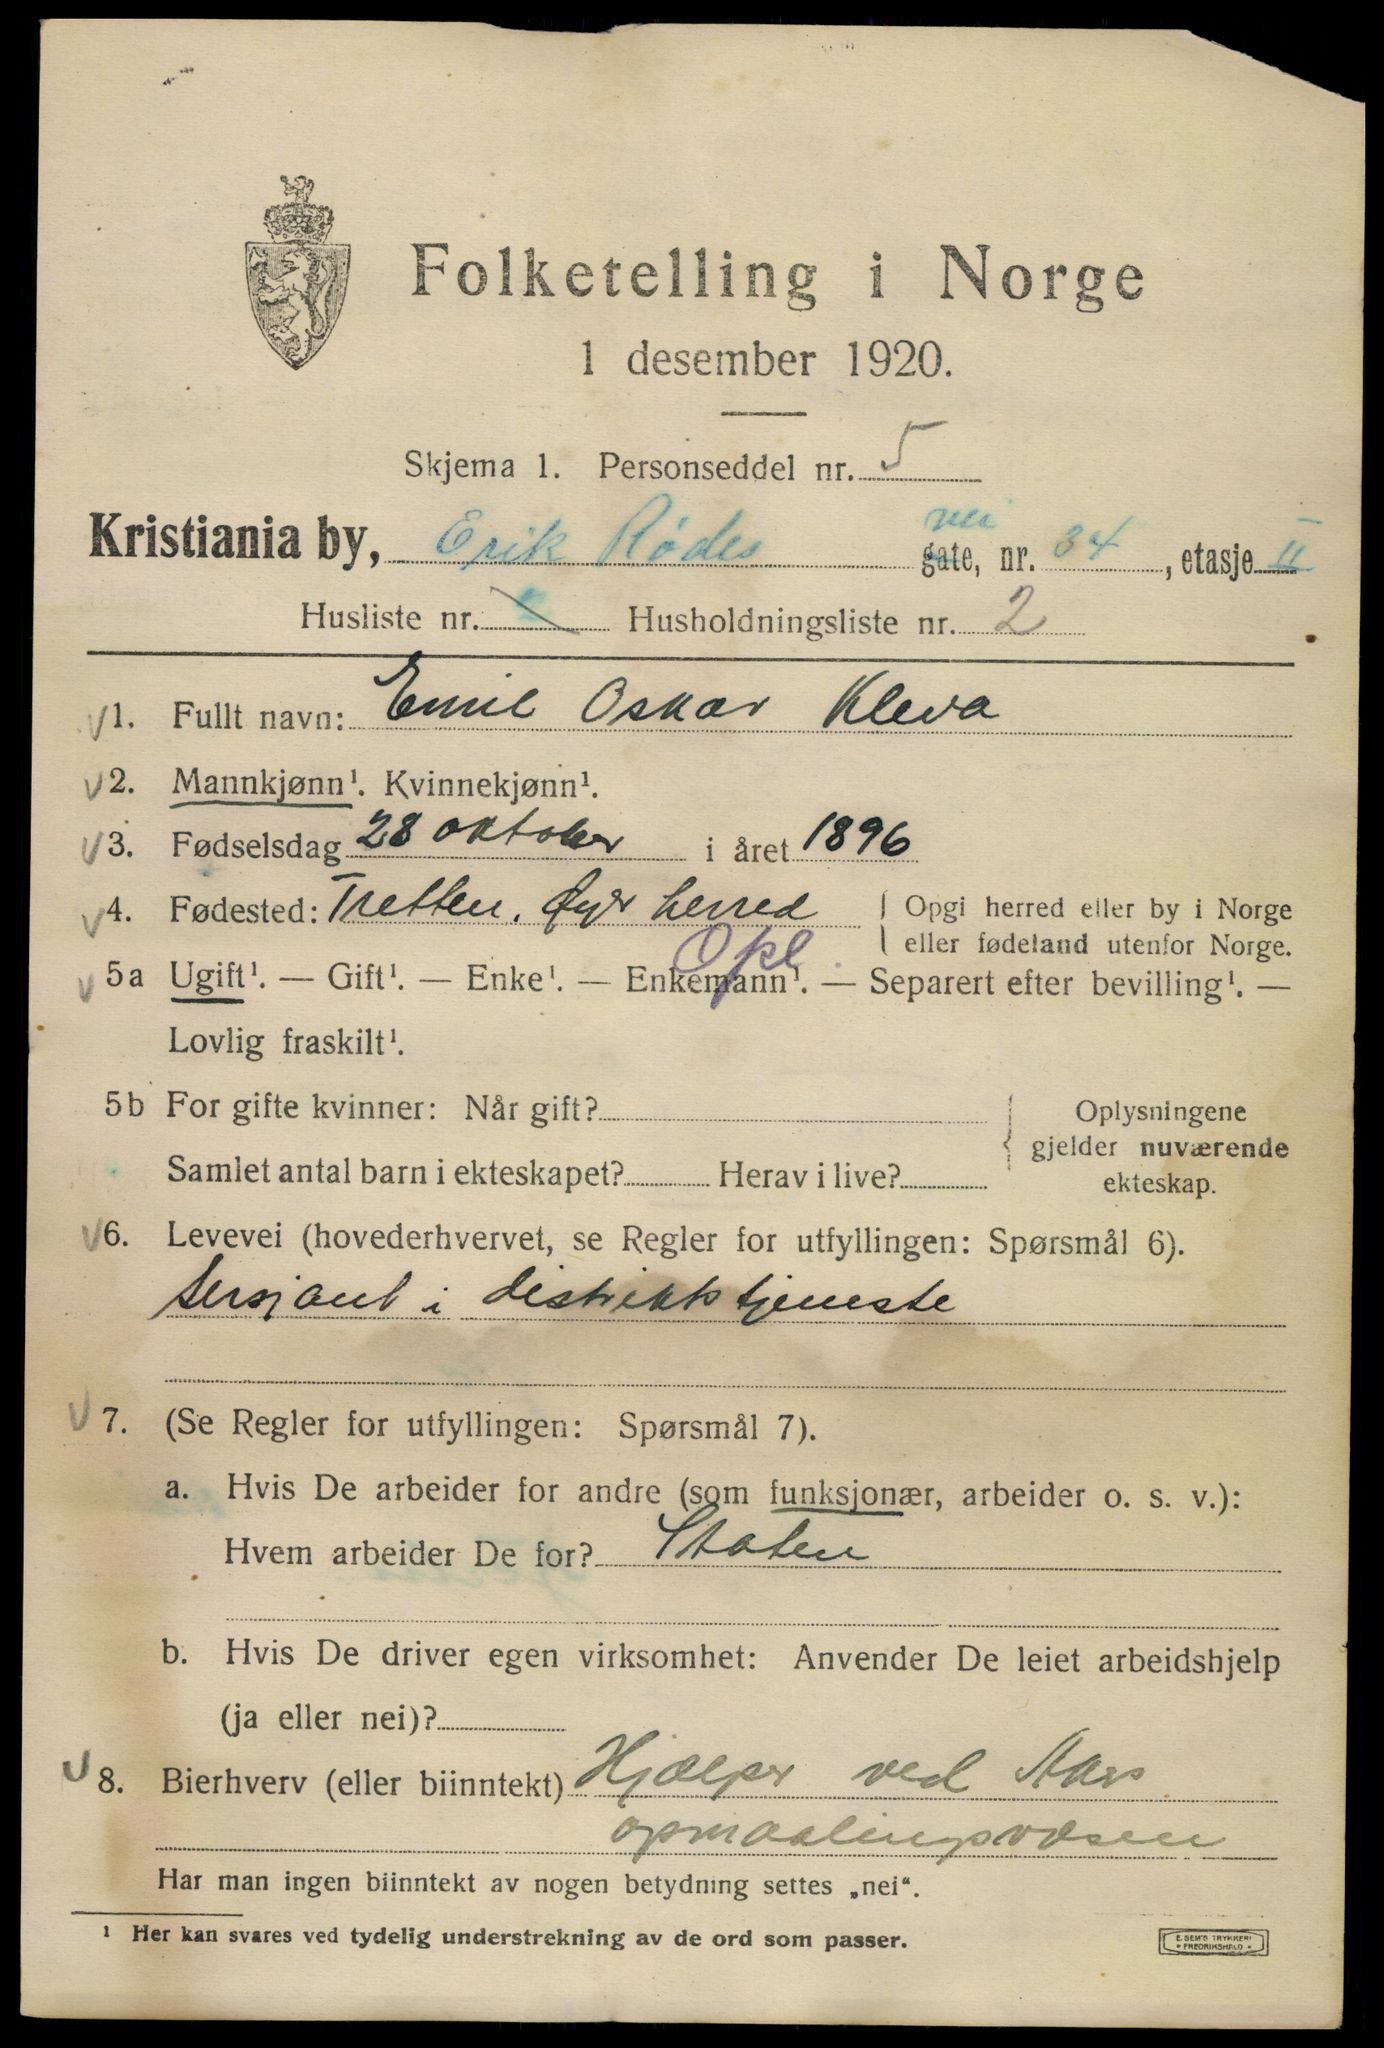 Folketelling i Norge
1 desember 1920.
Skjema 1. Personseddel nr. 5
Kristiania by, Erik Rødes vei gate, nr. 34, etasje II
Husliste nr. Husholdningsliste nr. 2
1. Fullt navn: Emil Oskar Kleva
2. Mannkjønn¹. Kvinnekjønn¹.
3. Fødselsdag 28 oktober i året 1896
4. Fødested: Tretten. Øyer herred Opgi herred eller by i Norge
eller fødeland utenfor Norge.
Opl.
5a Ugift¹. — Gift¹. — Enke¹. — Enkemann¹. — Separert efter bevilling¹. —
Lovlig fraskilt¹.
5b For gifte kvinner: Når gift? Oplysningene
gjelder nuværende
Samlet antal barn i ekteskapet? Herav i live? ekteskap.
6. Levevei (hovederhvervet, se Regler for utfyllingen: Spørsmål 6).
Sersjant i distriktstjeneste
7. (Se Regler for utfyllingen: Spørsmål 7).
a. Hvis De arbeider for andre (som funksjonær, arbeider o. s. v.):
Hvem arbeider De for? Staten
b. Hvis De driver egen virksomhet: Anvender De leiet arbeidshjelp
(ja eller nei)?
8. Bierhverv (eller biinntekt) Hjælper ved Akers
opmaalingsvæsen
Har man ingen biinntekt av nogen betydning settes „nei“.
¹ Her kan svares ved tydelig understrekning av de ord som passer.
E. SEM'S TRYKKERI
• FREDRIKSHALD •